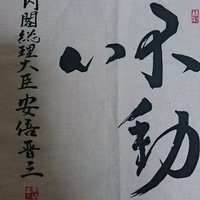 不動
心
内閣総理大臣 安倍晋三